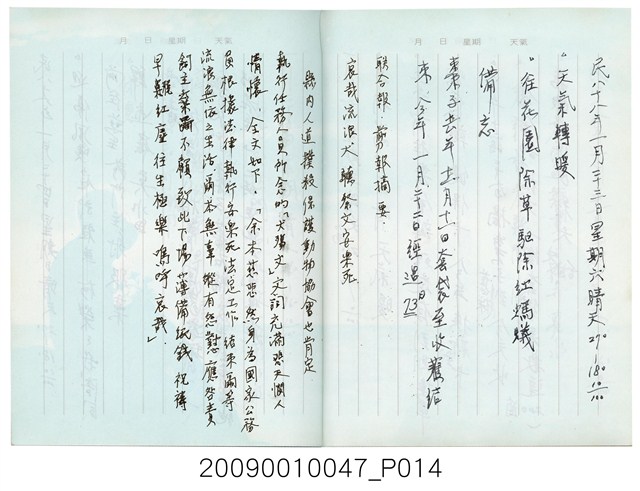 天氣 星期 日 月
民八十八年一月二十三日星期六晴天27°-18° 10/100
"天氣轉暖
"往花園除草驅除紅螞蟻
備忘
棗子去年十一月十一日套袋至收舊結
束、今年一月二十二日經過73日
聯合報、剪報摘要
哀哉流浪犬 聽祭文安樂死
天氣 星期 日 月
縣內人道撲殺保護動物協會也肯定
執行任務人員所念的「犬殤文」文詞充滿悲天憫人
情懷、全文如下、「余本慈悲、然身為國家公務
員根據法律執行安樂死法定工作、結束爾等
流浪無依之生活、爾本無辜、縱有怨懟應咎責
飼主棄爾不顧致此下場、薄備紙錢、祝禱
早離紅塵往生極樂、嗚呼哀哉」
20090010047_P014